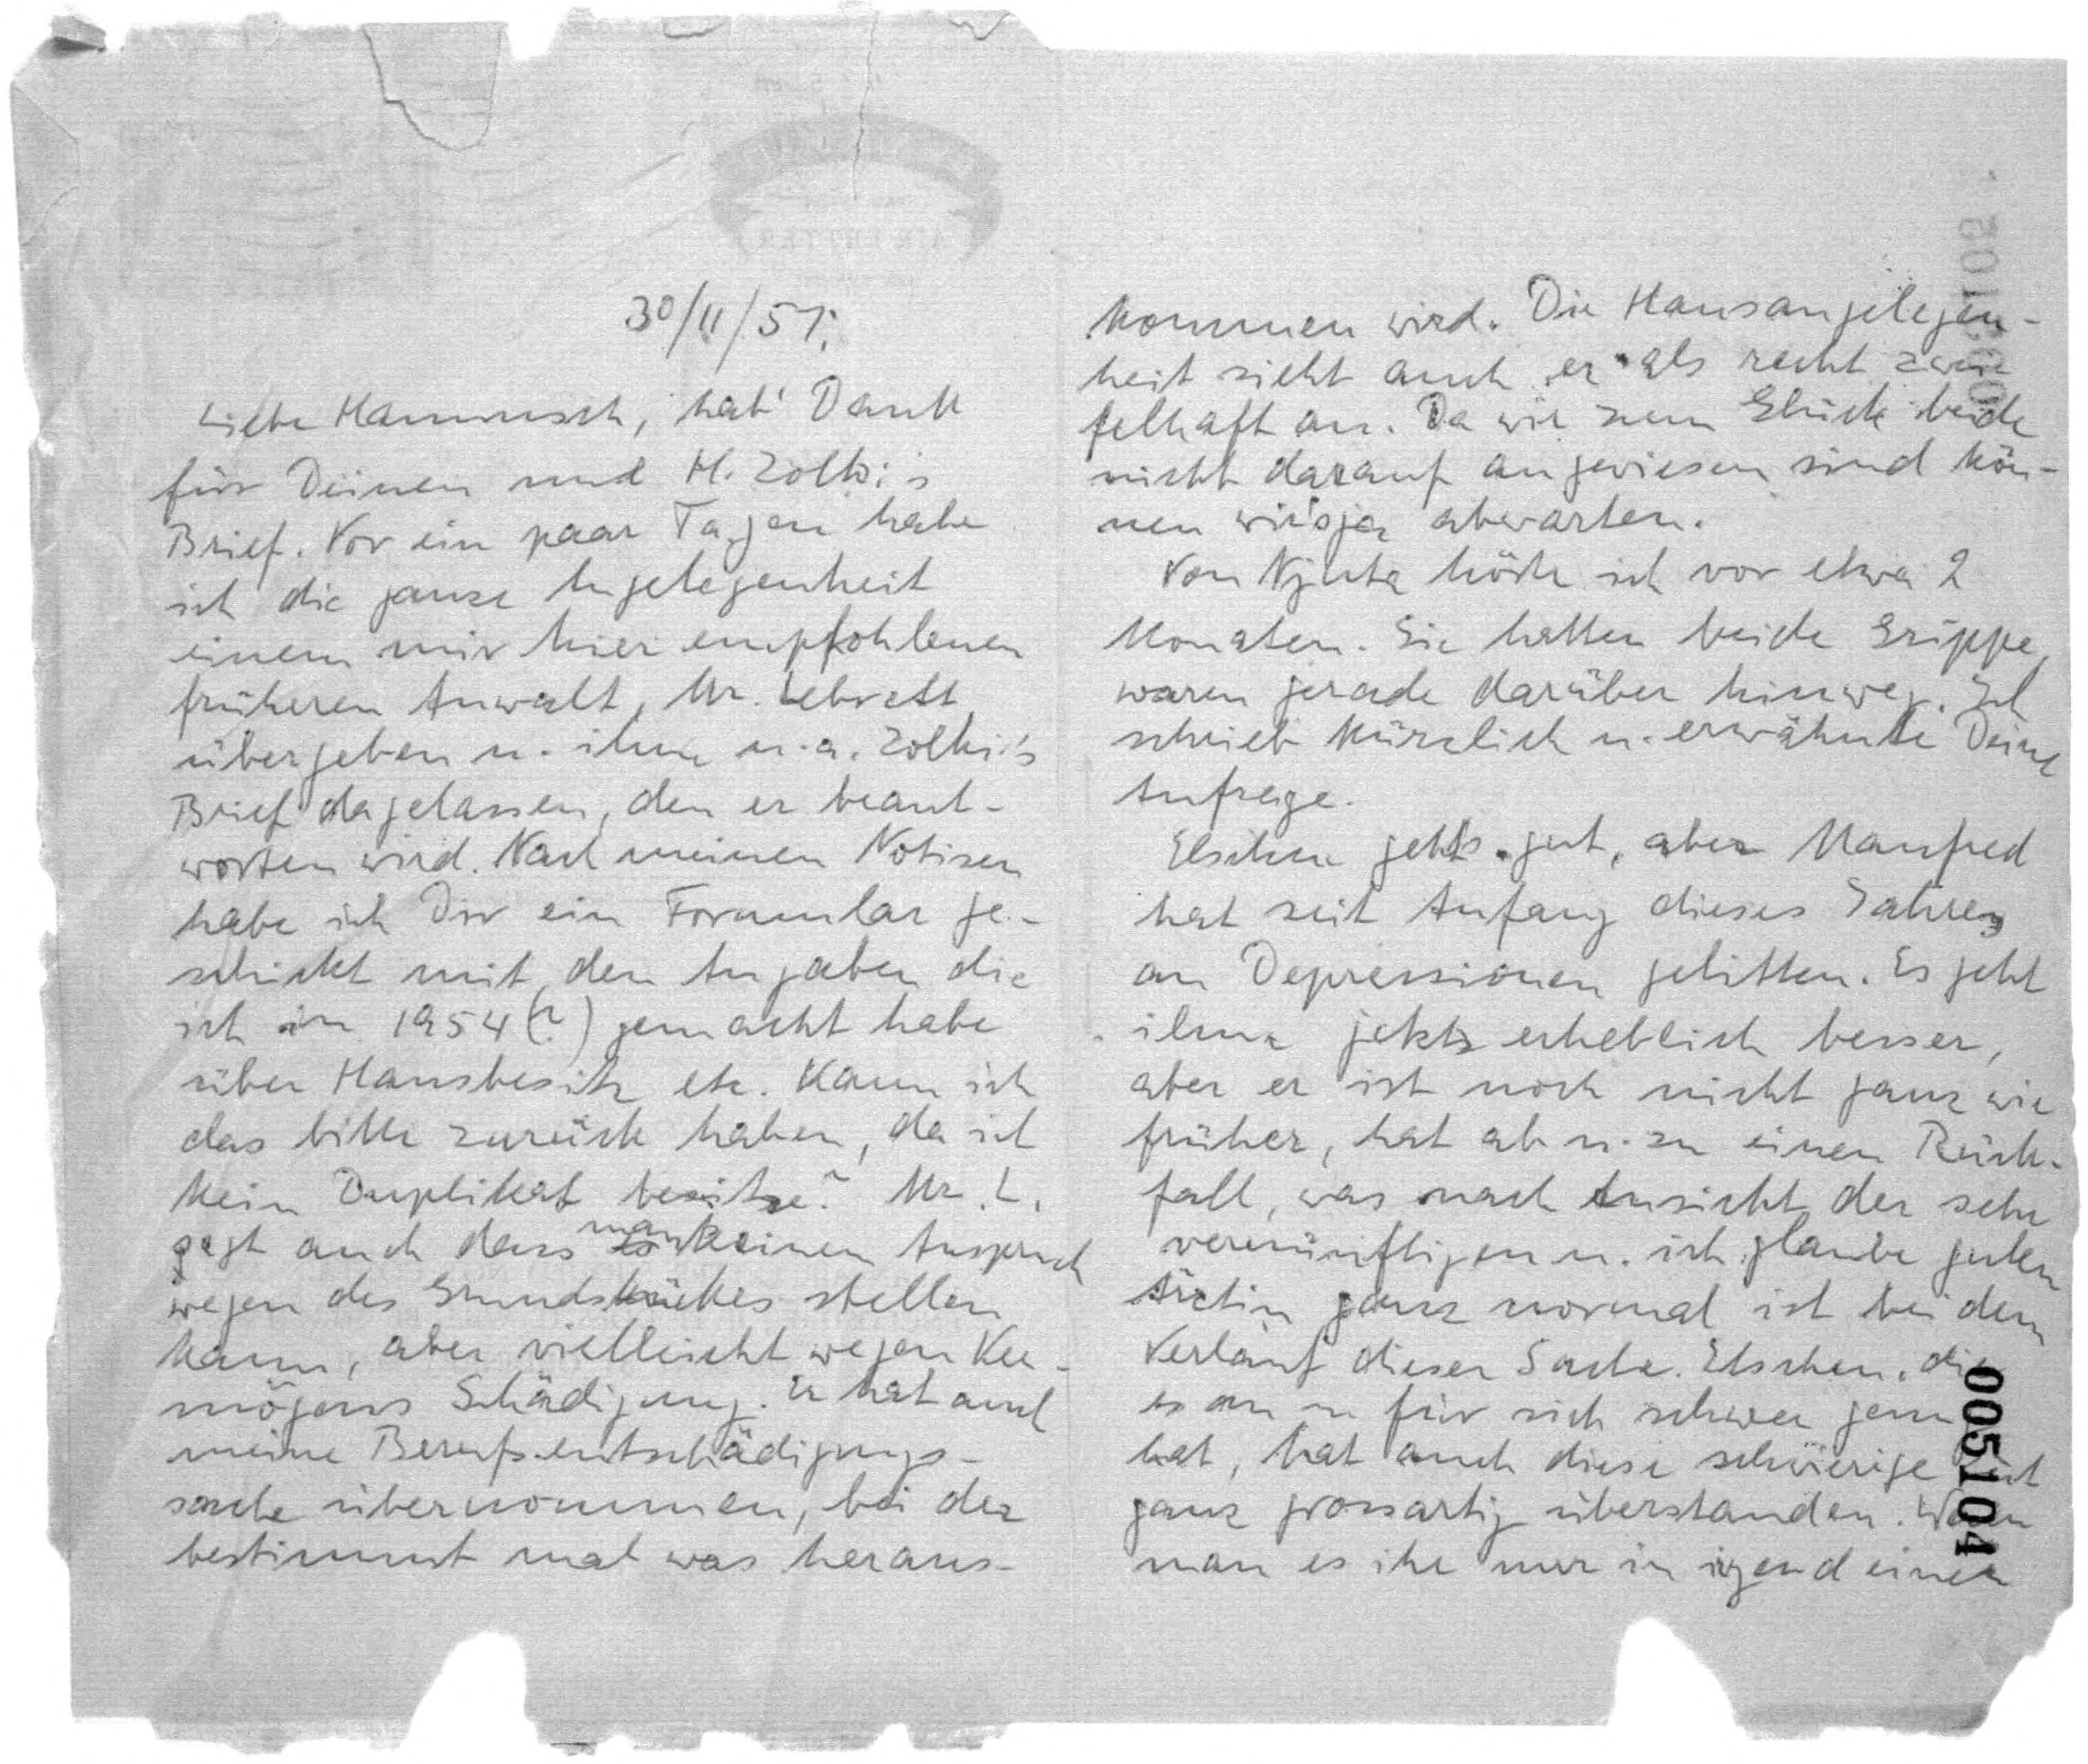 30/11/57.
Liebe Hannusch, hab' Dank
für Deinen und H. Zolki's
Brief. Vor ein paar Tagen habe
ich die ganze Angelegenheit
einem mir hier empfohlenen
früheren Anwalt, Mr.
übergeben u. ihm u.a. Zolki's
Brief dagelassen, den er beant-
worten wird. Nach meinen Notizen
habe ich Dir ein Formular ge-
schickt mit den Angaben die
ich in 1954(?) gemacht habe
über Hausbesitz etc. Kann ich
das bitte zurück haben, da ich
kein Duplikat besitze? Mr. L.
sagt auch dass man keinen Anspruch
wegen des Grundstückes stellen
kann, aber vielleicht wegen Ver-
mögens Schädigung. Er hat auch
meine Berufsentschädigungs-
sache übernommen, bei der
bestimmt mal was heraus-
kommen wird. Die Hausangelegen-
heit sieht auch er als recht zwei
felhaft an. Da wir zum Glück beide
nicht darauf angewiesen sind kön-
nen wir's ja abwarten.
Von Njuta hörte ich vor etwa 2
Monaten. Sie hatten beide Grippe,
waren gerade darüber hinweg. Ich
schrieb kürzlich u. erwähnte Deine
Anfrage.
Elschen gehts gut, aber Manfred
hat seit Anfang dieses Jahres
an Depressionen gelitten. Es geht
ihm jetzt erheblich besser,
aber er ist noch nicht ganz wie
früher, hat ab u. zu einen Rück-
fall, was nach Ansicht der sehr
vernünftigen u. ich glaube guten
Ärztin ganz normal ist bei dem
Verlauf dieser Sache. Elschen, die
es an u für sich schwer genug
hat, hat auch diese schwierige Zeit
ganz grossartig überstanden. Wenn
man es ihr nur in irgend einer
005104